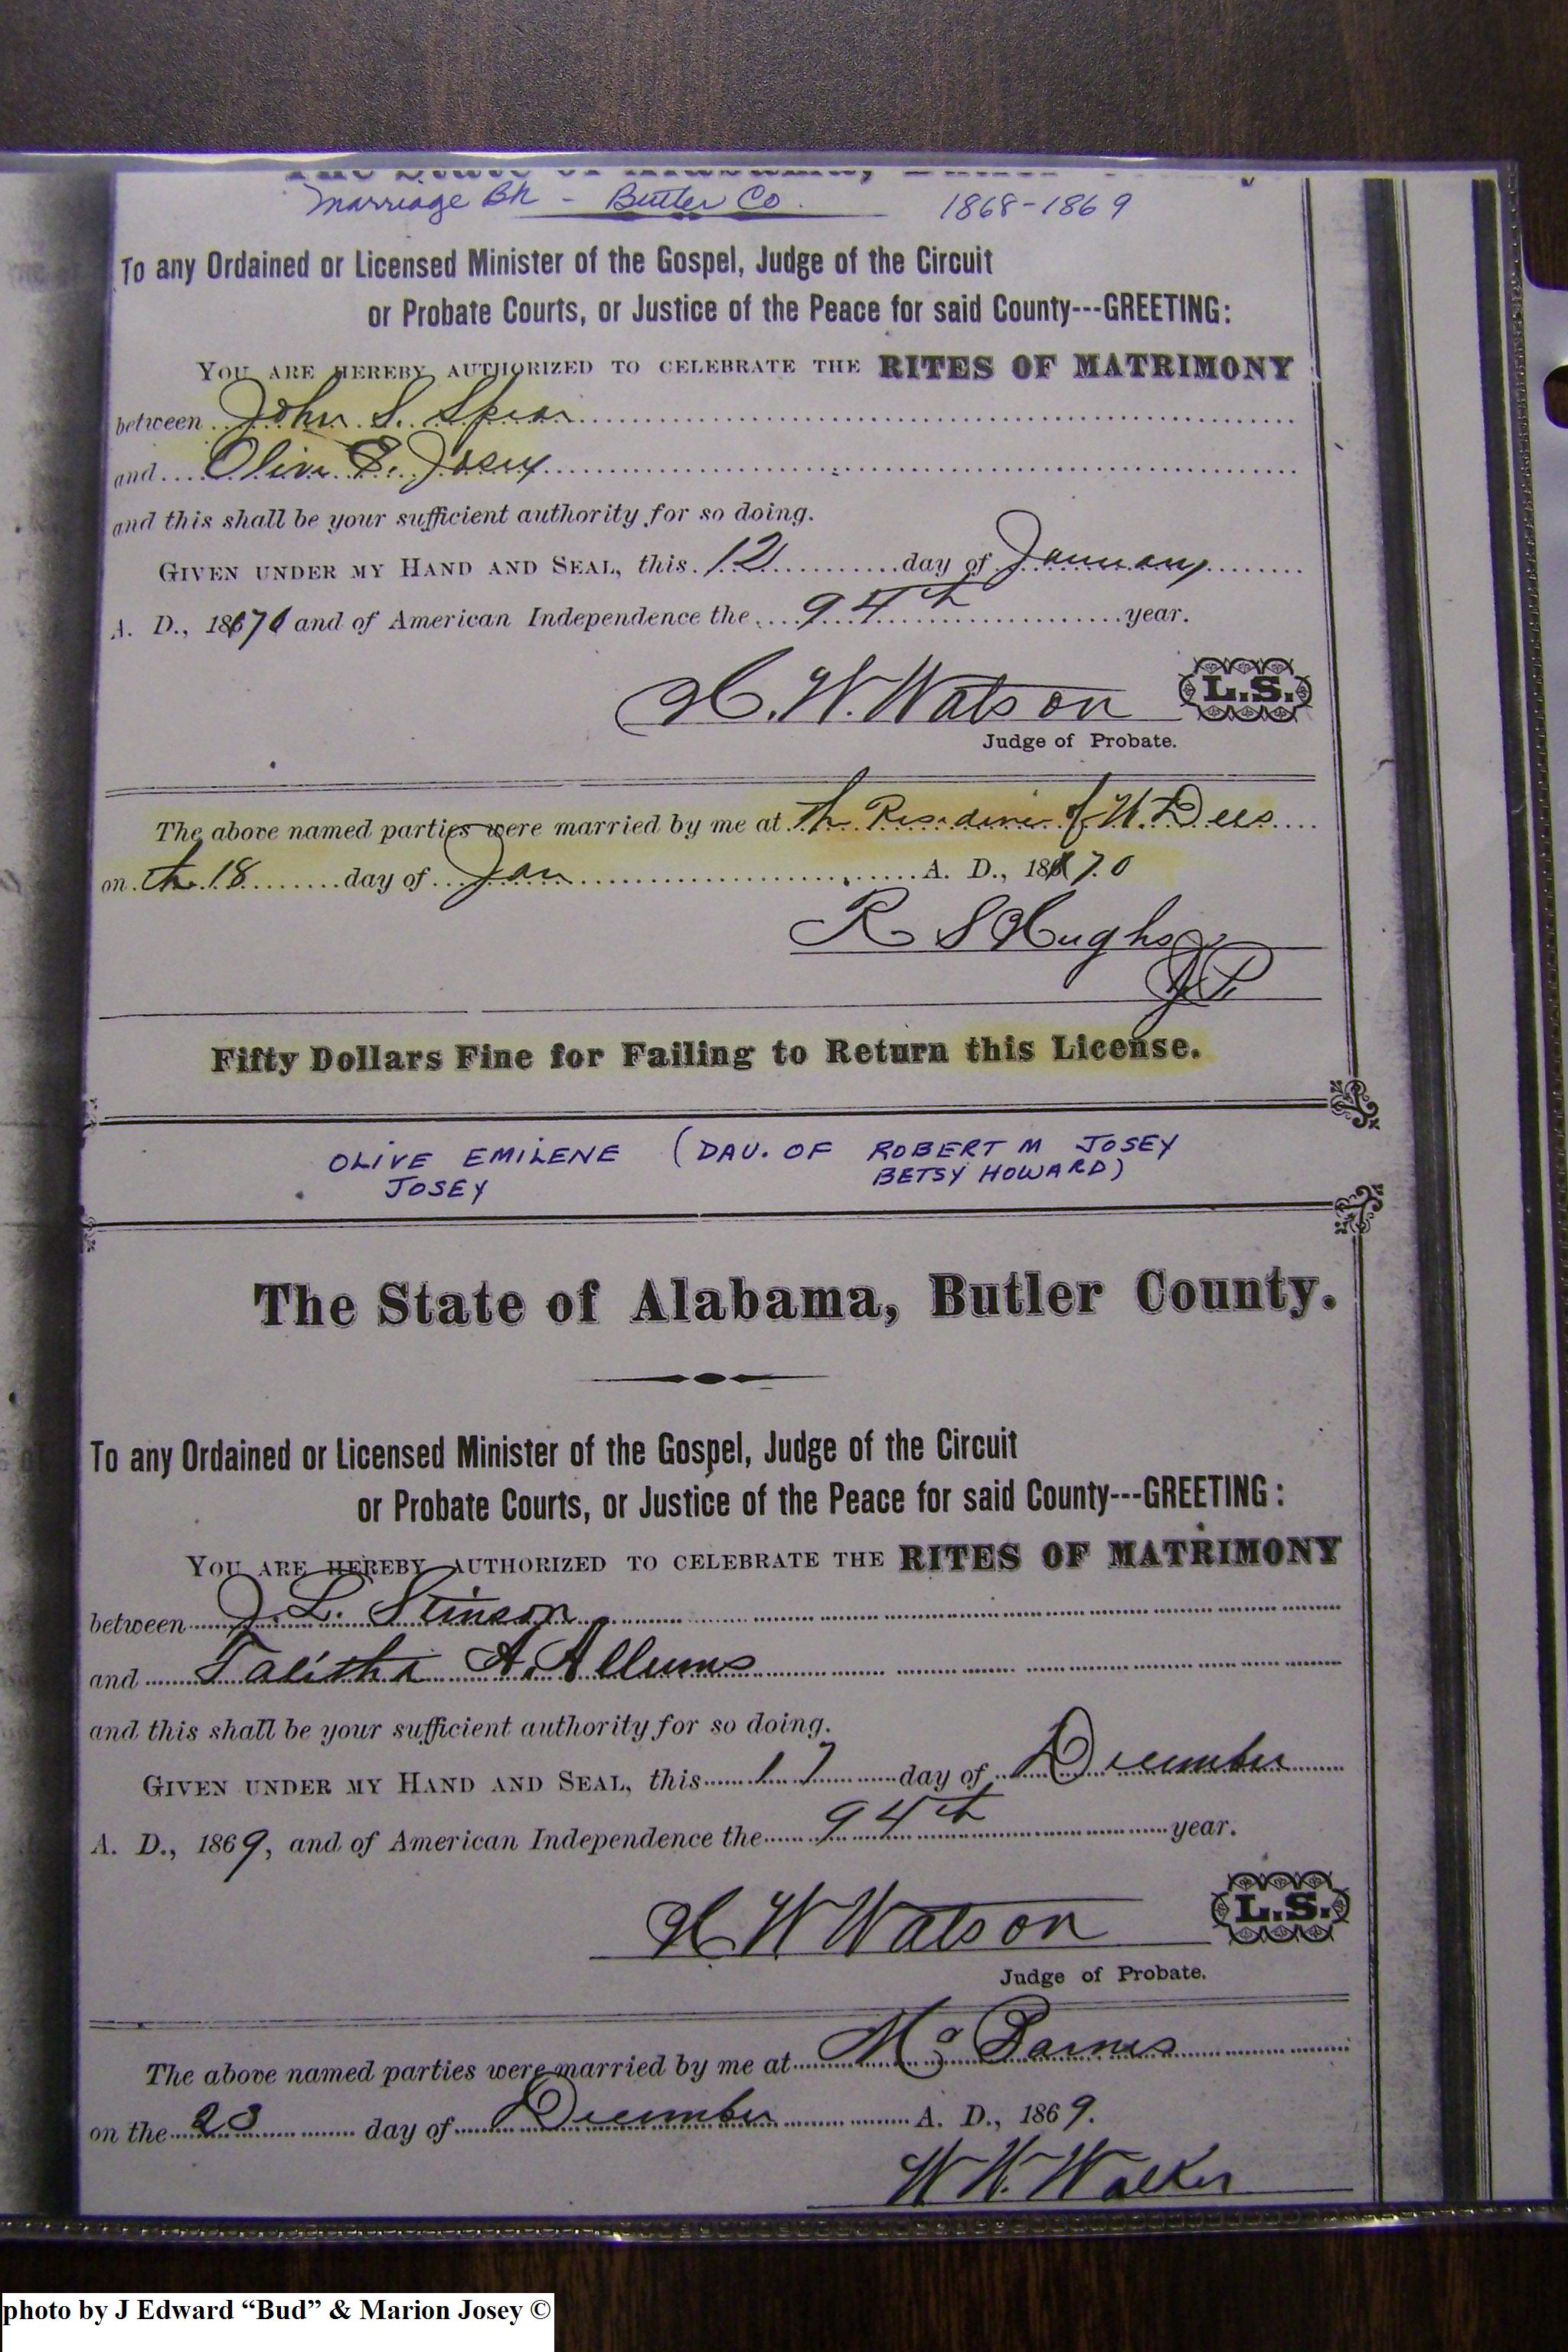 The State of Alabama, Butler
Marriage Bk - Butler Co. 1868-1869
To any Ordained or Licensed Minister of the Gospel, Judge of the Circuit
or Probate Courts, or Justice of the Peace for said County---GREETING:
YOU ARE HEREBY AUTHORIZED TO CELEBRATE THE RITES OF MATRIMONY
between John S. Spear
and Olive E. Josey
and this shall be your sufficient authority for so doing.
GIVEN UNDER MY HAND AND SEAL, this 12 day of January
A. D., 1870 and of American Independence the 94th year.
H. W. Watson L.S.
Judge of Probate.
The above named parties were married by me at th Residence of W. Dees
on the 18 day of Jan A. D., 1870
R S Hughs
JP
Fifty Dollars Fine for Failing to Return this License.
OLIVE EMILENE (DAU. OF ROBERT M JOSEY
JOSEY BETSY HOWARD)
The State of Alabama, Butler County.
To any Ordained or Licensed Minister of the Gospel, Judge of the Circuit
or Probate Courts, or Justice of the Peace for said County---GREETING:
YOU ARE HEREBY AUTHORIZED TO CELEBRATE THE RITES OF MATRIMONY
between J. L. Stinson
and Talitha A. Allums
and this shall be your sufficient authority for so doing.
GIVEN UNDER MY HAND AND SEAL, this 17 day of December
A. D., 1869, and of American Independence the 94th year.
H W Watson L.S.
Judge of Probate.
The above named parties were married by me at Barnes
on the 23 day of December A. D., 1869.
W W. Walker
photo by J Edward “Bud” & Marion Josey ©